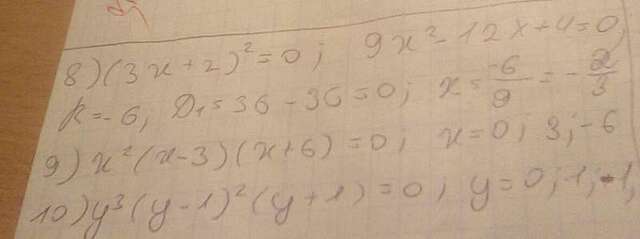 8) (3x+2)²=0; 9x²-12x+4=0;
k=-6; D₁=36-36=0; x=-6/9=-2/3
9) x²(x-3)(x+6)=0; x=0; 3; -6
10) y³(y-1)²(y+1)=0; y=0; 1; -1;